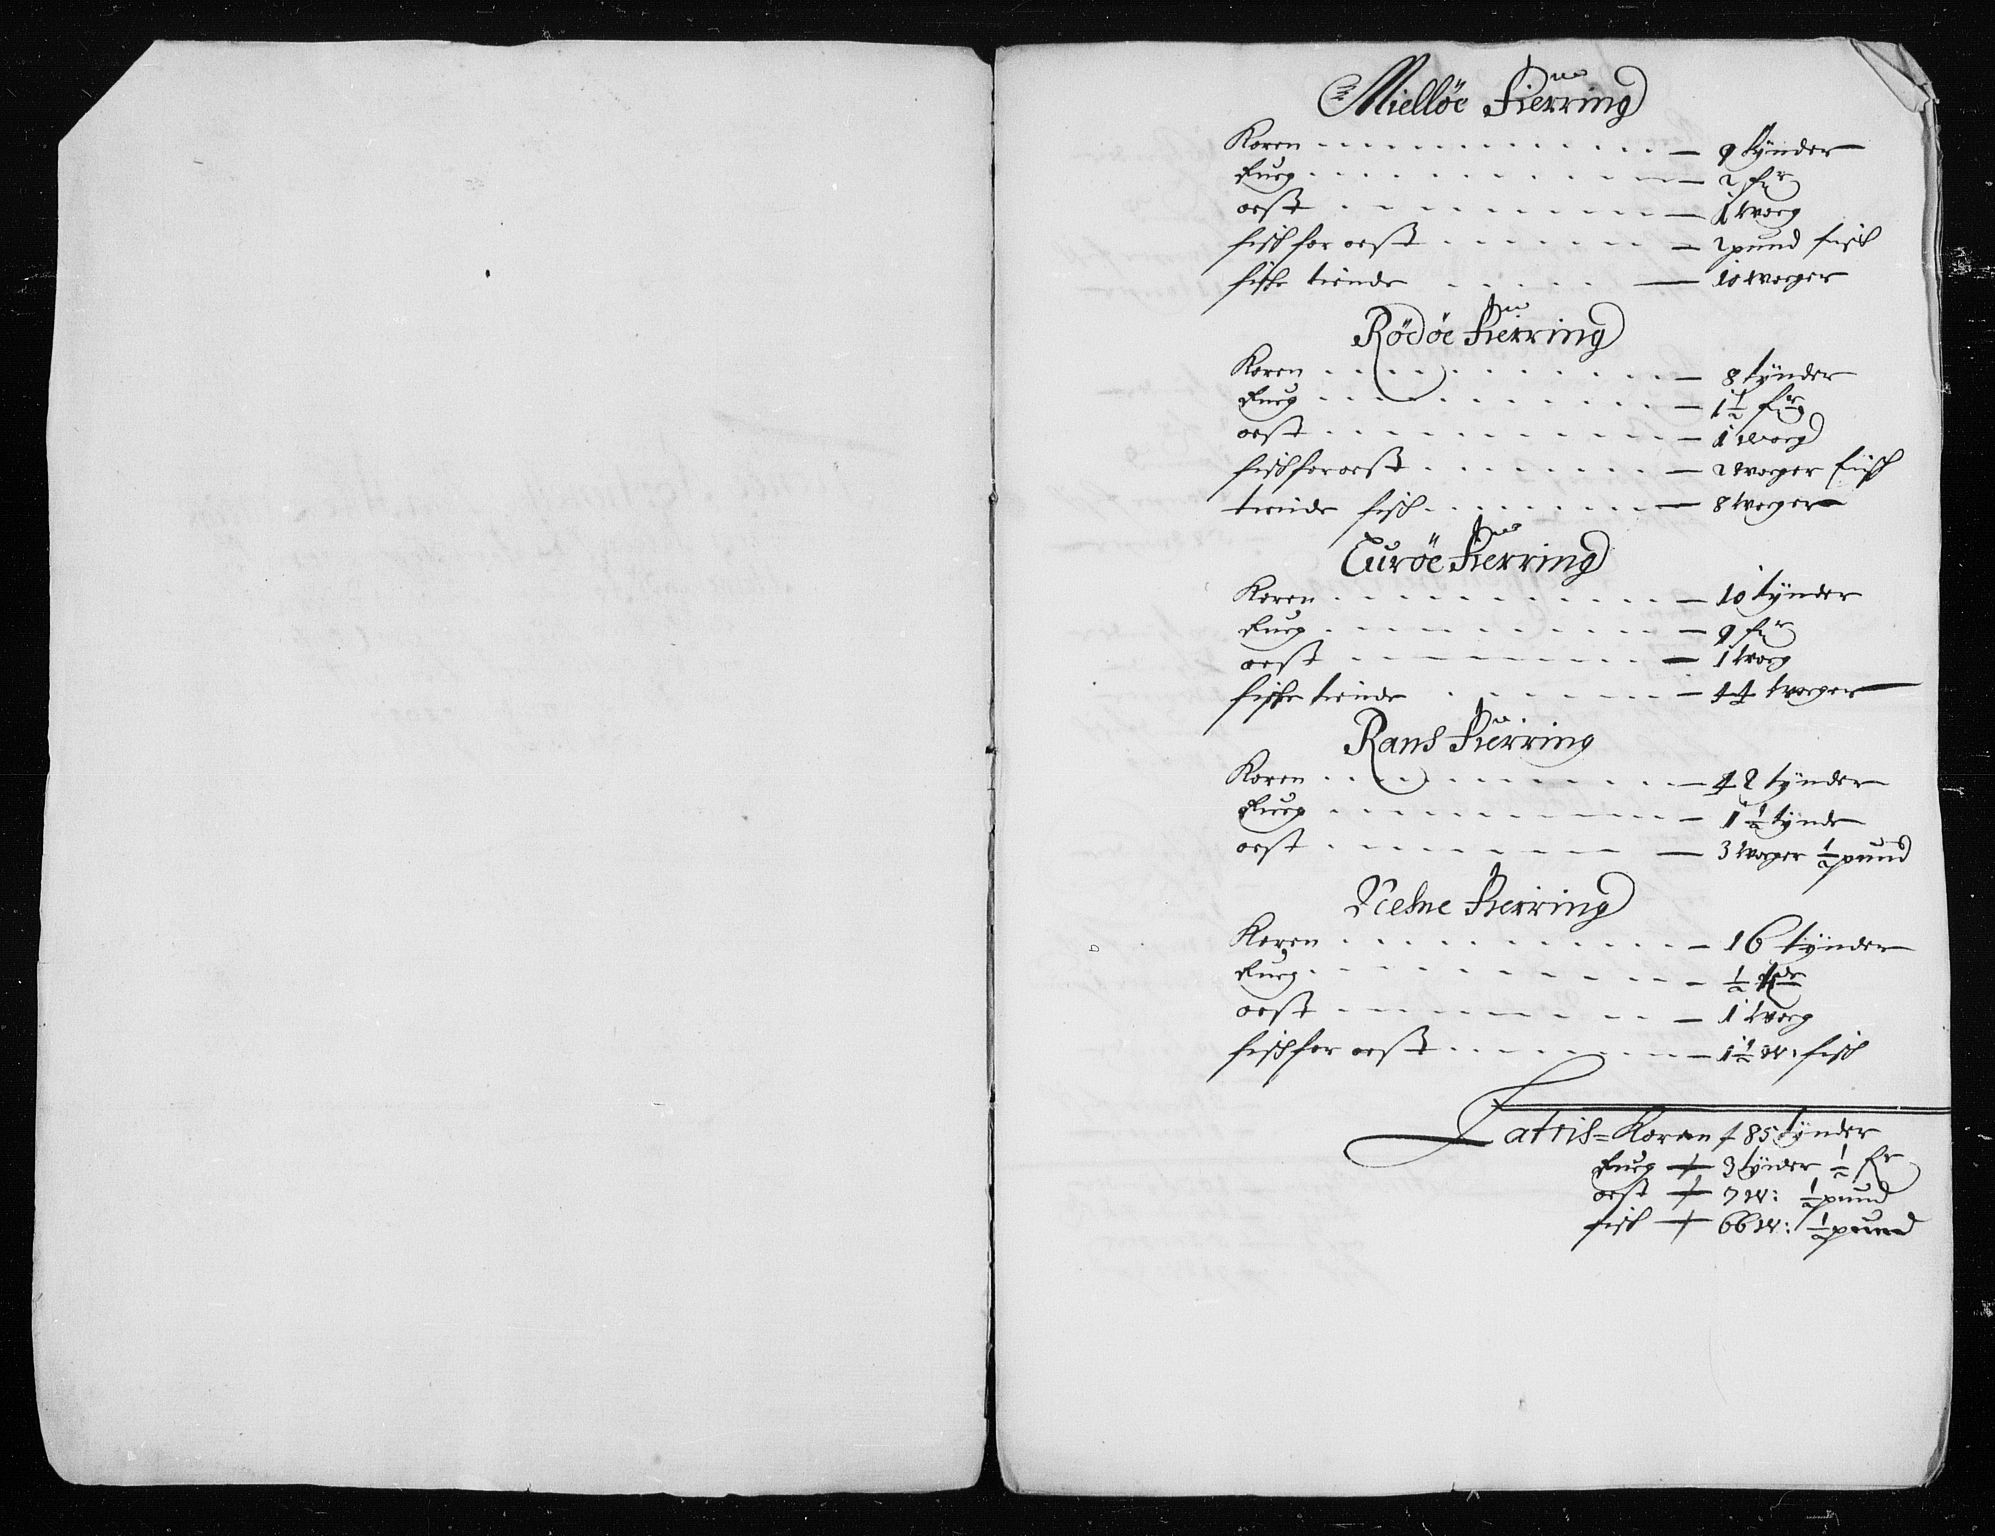 Mielløe Fierring
Koren - - - - - - - - - - - 9 tÿnder
Rueg - - - - - - - - - - - 2 fr
oest - - - - - - - - - - 1 woeg
fisk for oest - - - - - - - 2 pund fisk
fiske tiende - - - - - 10 woger
Rödöe Fierring
Koren - - - - - - - - - - - 8 tÿnder
Rueg - - - - - - - - - - - 1½ fr
oest - - - - - - - - - - - 1 woeg
fisk for oest - - - - - - - 2 woger fisk
tiende fisk - - - - - - - - 8 woger
Turøe Fierring
Koren - - - - - - - - - - - 10 tÿnder
Rueg - - - - - - - - - - - 9 fr
oest - - - - - - - - - - 1 woeg
fiske tiende - - - - - - - 44 woger
Rans Fierring
Koren - - - - - - - - - - - 42 tÿnder
Rueg - - - - - - - - - - - 1½ tÿnde
oest - - - - - - - - - - 3 woger ½ pund
Nesne Fierring
Koren - - - - - - - - - - - 16 tÿnder
Rueg - - - - - - - - - - - ½
oest - - - - - - - - - - 1 woeg
fisk for oest - - - - - - - 1½ W: fisk
Lateris = Koren + 85 tÿnder
Rueg + 3 tÿnder ½ fr
oest + 7 W: ½ pund
fisk + 66 W: ½ pund